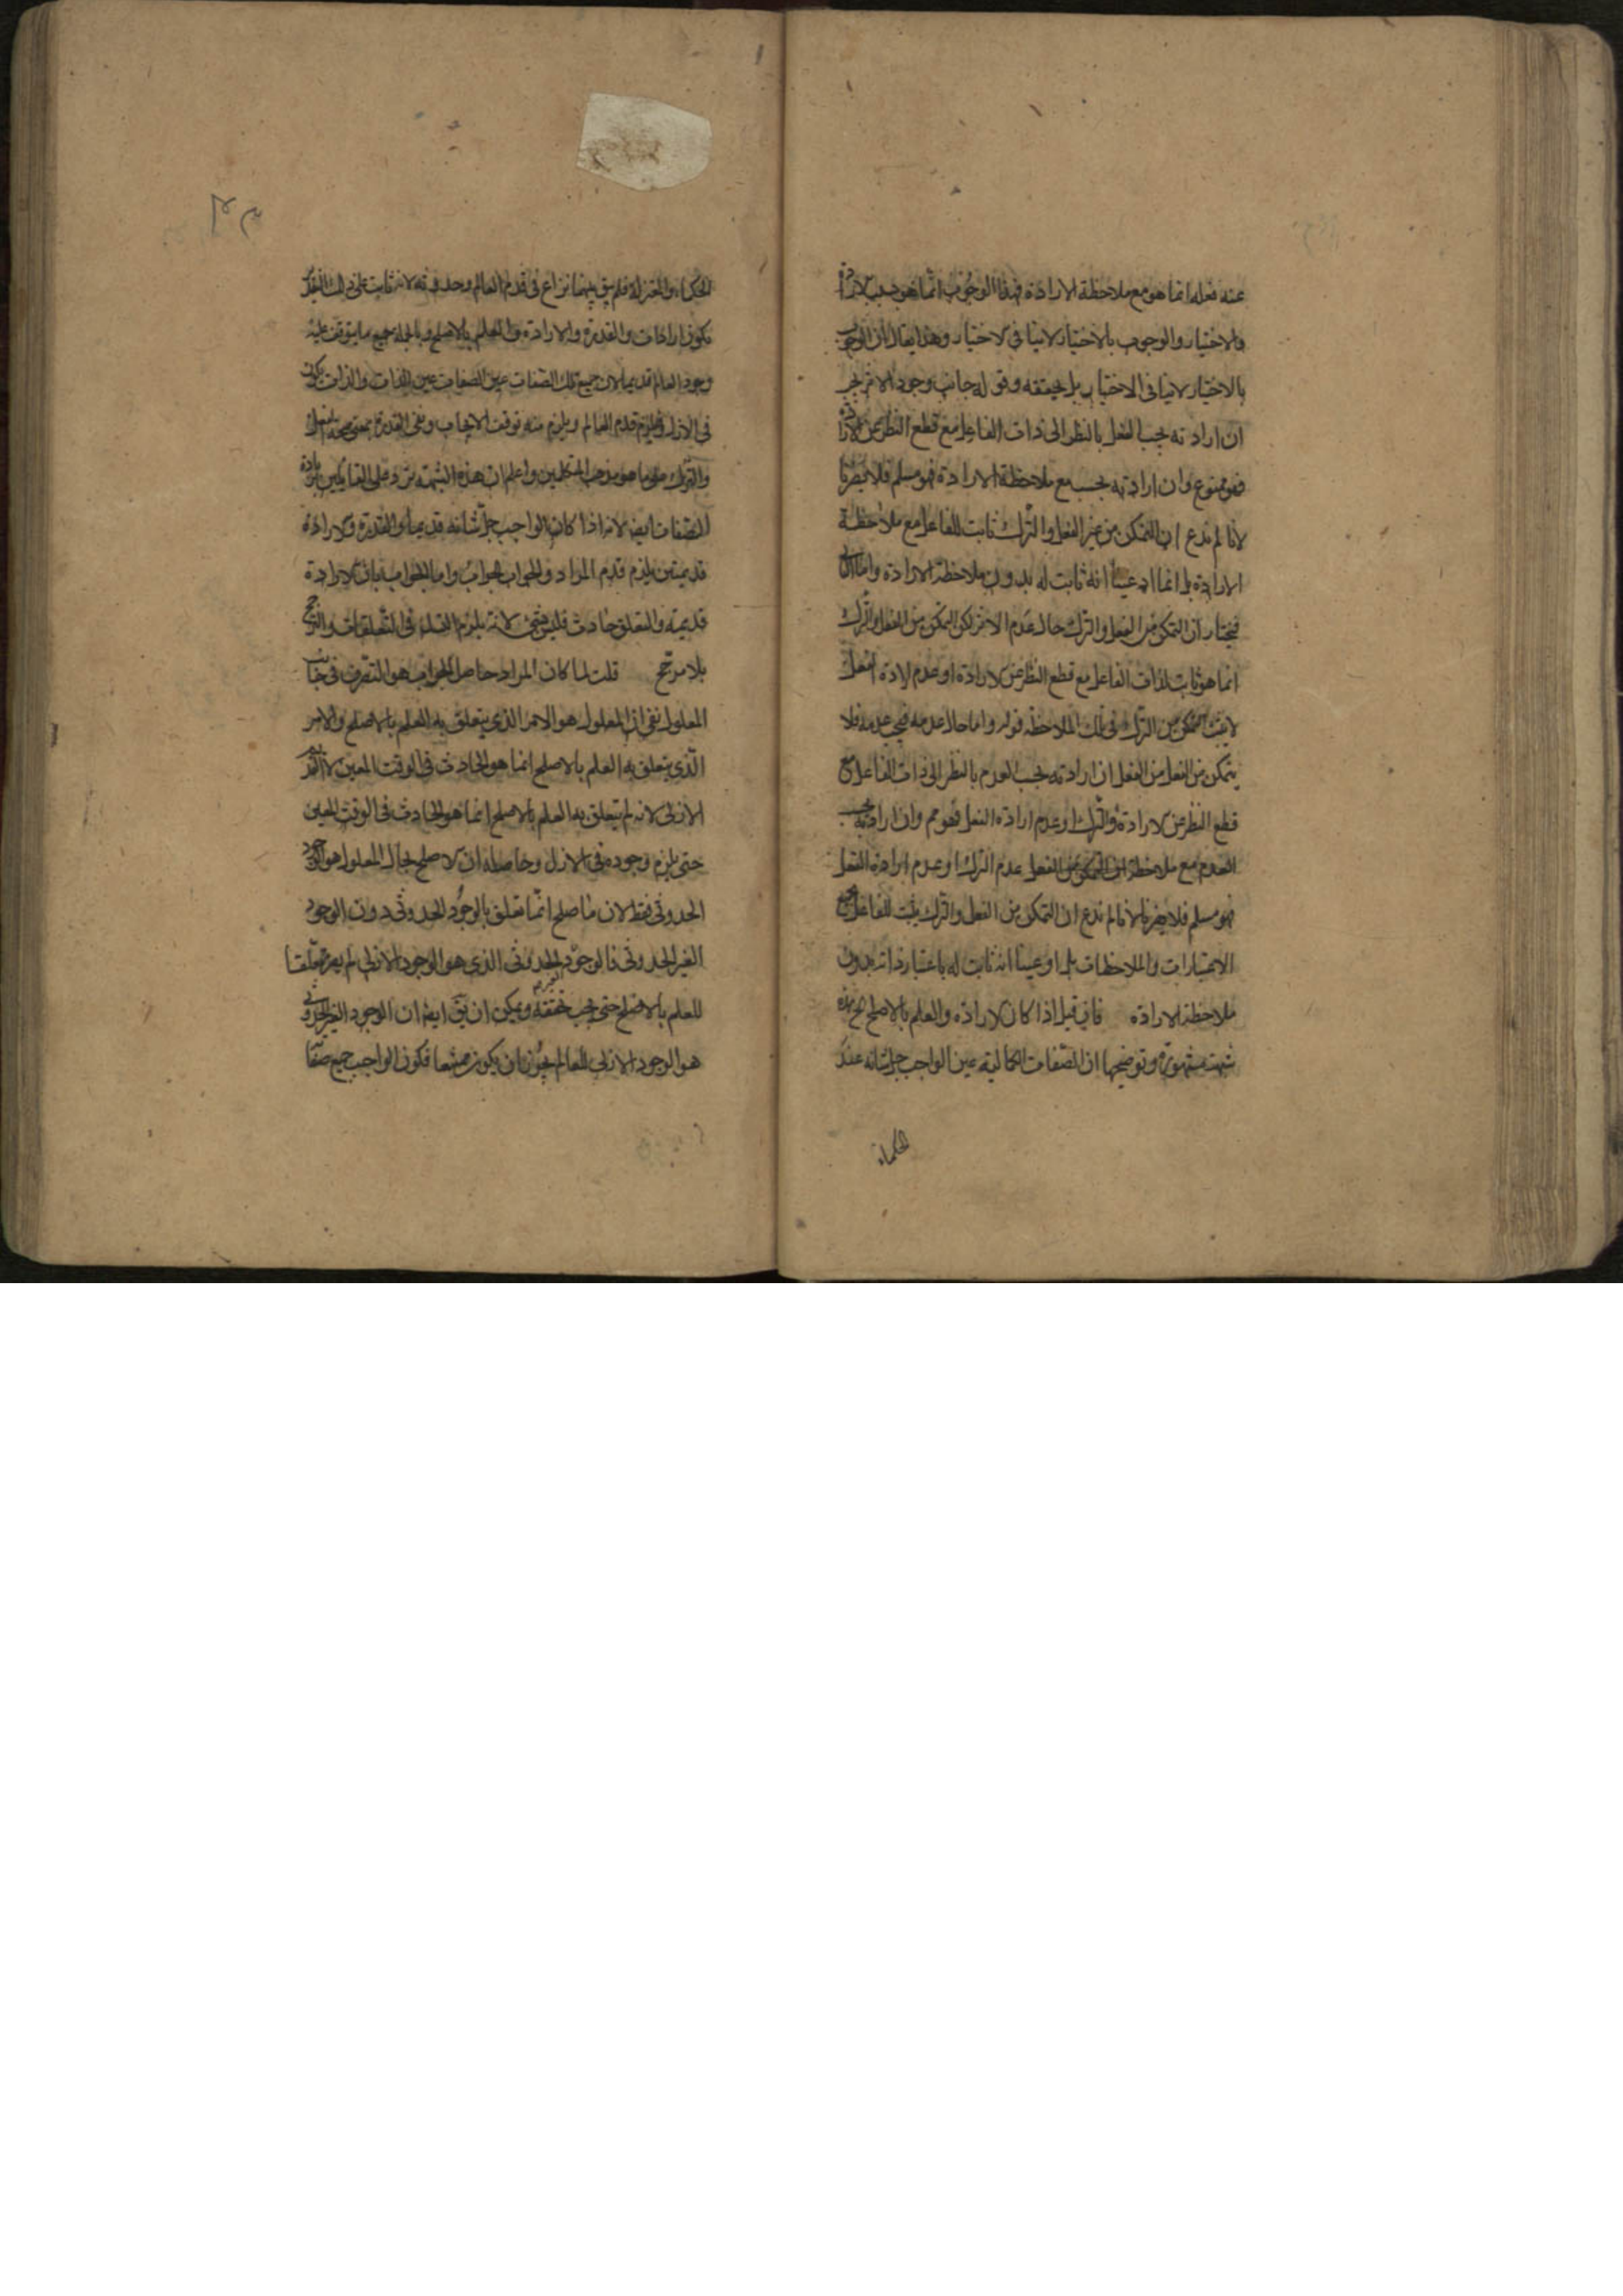 عنه فعله انما هو مع ملاحظة الارادة فهذا الوجوب انما هو بسبب الارادة
والاختيار والوجوب بالاختيار لاينافى الاختيار وهذا يقال ان الوجوب
بالاختيار لاينافى الاختيار بل يحققه وقوله جانب وجود الاثر يجب
ان اراد ته يجب الفعل بالنظر الى ذات الفاعل مع قطع النظر عن الارادة
فهو ممنوع وان اراد ته يجب مع ملاحظة الارادة فهو مسلم فلا يضرنا
لانا لم ندع ان التمكن من غير الفعل والترك ثابت للفاعل مع ملاحظة
الارادة بل انما ادعينا انه ثابت له بدون ملاحظة الارادة واما
فيختار ان التمكن من الفعل والترك حال عدم الاثر لكن التمكن من الفعل والترك
انما هو ثابت لذات الفاعل مع قطع النظر عن الارادة او عدم الارادة
لايثبت التمكن من الترك فى تلك الملاحظة قوله واما حال عدمه فيجب عدمه فلا
يتمكن من الفعل ان اراد ته يجب العدم بالنظر الى ذات الفاعل مع
قطع النظر عن الارادة والترك او عدم ارادة الفعل فهو مم وان اراد ته يجب
العدم مع ملاحظة التمكن من الفعل عدم الترك او عدم ارادة الفعل
فهو مسلم فلا يضرنا لانا لم ندع ان التمكن من الفعل والترك يثبت للفاعل مع جميع
الاعتبارات والملاحظات بل ادعينا انه ثابت له باعتبار ذاته بدون
ملاحظة الارادة فان قيل اذا كان الارادة والعلم بالاصلح هذه
شبهة مشهورة وتوضيحها ان الصفات الكمالية عين الواجب جل شانه عند
الحكماء
الحكماء والمعتزلة فلم يبق بينهما نزاع فى قدم العالم وحدوثه لانه ثابت على ذلك التقدير
يكون ارادات والقدرة والارادة والعلم بالاصلح وبالجملة جميع ما يتوقف عليه
وجود العالم قديما لان جميع تلك الصفات عين الصفات عين الذات والذات يكون
فى الازل فيلزم قدم العالم ويلزم منه توقت الايجاب ونفى القدرة بمعنى صحة الفعل
والترك على ما هو مذهب المتكلمين واعلم ان هذه الشبهة ترد على القائلين بزيادة
الصفات ايضا لانه اذا كان الواجب جل شانه قديما والقدرة والارادة
قديمتين يلزم قدم المراد والجواب الجواب واما الجواب بان الارادة
قديمة والتعلق حادث فليس بشئ لانه يلزم التسلسل فى التعلقات والترجيح
بلا مرجح قلت لما كان المراد حاصل الجواب هو التصرف فى جانب
المعلول يعنى ان المعلول هو الامر الذى يتعلق به العلم بالاصلح والامر
الذى يتعلق به العلم بالاصلح انما هو الحادث فى الوقت المعين لا القديم
الازلى لانه لم يتعلق به العلم بالاصلح انما هو الحادث فى الوقت المعين
حتى يلزم وجوده فى الازل وحاصله ان الاصلح بحال المعلول هو الوجود
الحدوثى فقط لان ما صلح انما تعلق بالوجود الحدوثى دون الوجود
الغير الحدوثى فالوجود الحدوثى الذى هو الوجود الازلى لم يصر متعلقا
للعلم بالاصلح حتى يجب تحققه ويمكن ان يق ايضا ان الوجود الغير الحدوثى
هو الوجود الازلى للعالم يجوز ان يكون ممتنعا فكون الواجب جميع صفا